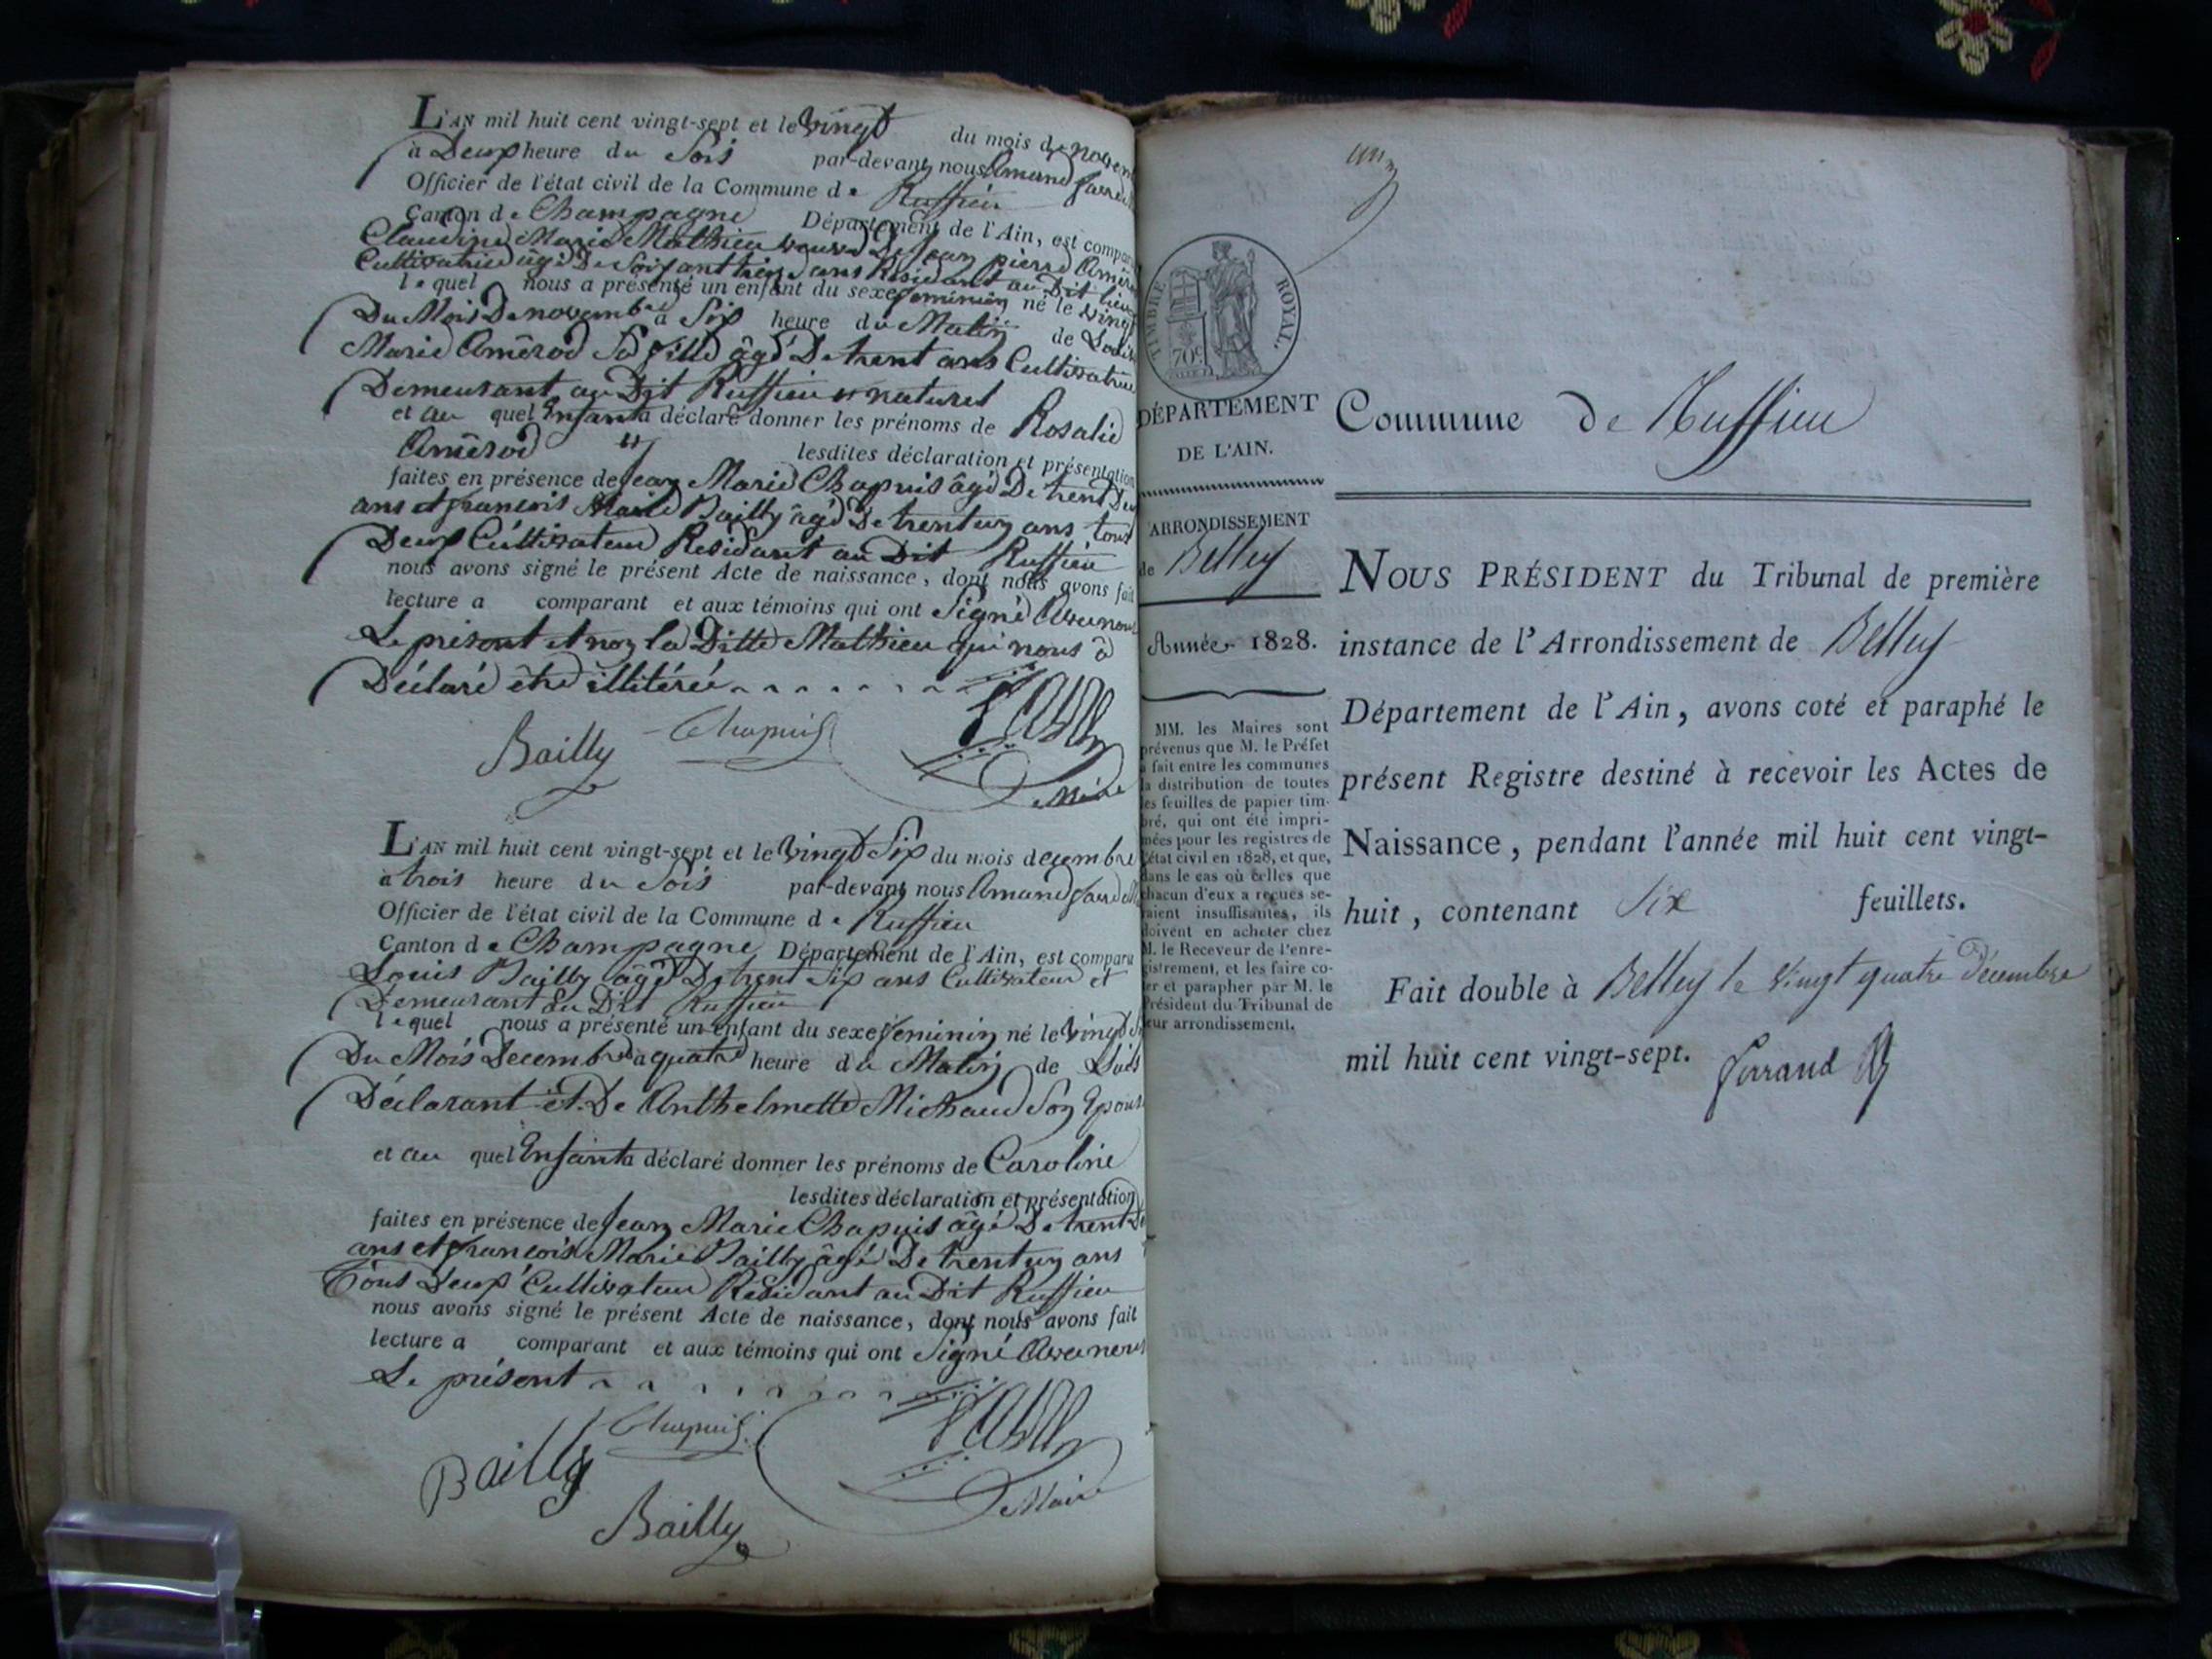 L'AN mil huit cent vingt-sept et le vingt du mois de novem
à Deux heure du Soir par-devant nous Amand
Officier de l'état civil de la Commune de Ruffieu
Canton de Champagne Département de l'Ain, est compar
Claudine Marie Mathieu veuve De Jean pierre Amérod
Cultivatrice âgé De Soixant treize ans Résidant au Dit lieu
lequel nous a présenté un enfant du sexe feminin né le vingt
Du Mois De novembre à Six heure du Matin de Louise
Marie Amêrod Sa fille âgé De trent ans Cultivatrice
Demeurant au Dit Ruffieu et naturel
et au quel Enfant a déclaré donner les prénoms de Rosalie
Amêrod lesdites déclaration et présentation
faites en présence de Jean Marie Chapuis âgé De trent Deu
ans et francois Marie Bailly âgé De trent un ans tous
Deux Cultivateur Residant au Dit Ruffieu
nous avons signé le présent Acte de naissance, dont nous avons fait
lecture a comparant et aux témoins qui ont Signé Avec nous
Le présent et non la Ditte Mathieu qui nous à
Déclaré être illitérée
Bailly Chapuis
Maire
L'AN mil huit cent vingt-sept et le vingt Six du mois decembre
à trois heure du Soir par-devant nous Amand
Officier de l'état civil de la Commune de Ruffieu
Canton de Champagne Département de l'Ain, est comparu
Louis Bailly âgé De trent Six ans Cultivateur et
Demeurant au Dit Ruffieu
lequel nous a présenté un enfant du sexe feminin né le vingt Si
Du Mois Decembre à quatre heure du Matin de Luis
Déclarant et De Anthelmette Michaud Son Epouse
et au quel Enfant a déclaré donner les prénoms de Caroline
lesdites déclaration et présentation
faites en présence de Jean Marie Chapuis âgé De trent De
ans et francois Marie Bailly âgé De trent un ans
Tous Deux Cultivateur Residant au Dit Ruffieu
nous avons signé le présent Acte de naissance, dont nous avons fait
lecture a comparant et aux témoins qui ont Signé Avec nous
Le présent
Chapuis
Bailly
Maire
Bailly
un
TIMBRE ROYAL.
70c
DÉPARTEMENT
DE L'AIN.
ARRONDISSEMENT
de Belley
Année 1828.
MM. les Maires sont
prévenus que M. le Préfet
a fait entre les communes
la distribution de toutes
les feuilles de papier tim-
bré, qui ont été impri-
mées pour les registres de
l'état civil en 1828, et que,
dans le cas où celles que
chacun d'eux a reçues se-
raient insuffisantes, ils
doivent en acheter chez
M. le Receveur de l'enre-
gistrement, et les faire co-
ter et parapher par M. le
Président du Tribunal de
leur arrondissement.
Commune de Ruffieu
NOUS PRÉSIDENT du Tribunal de première
instance de l'Arrondissement de Belley
Département de l'Ain, avons coté et paraphé le
présent Registre destiné à recevoir les Actes de
Naissance, pendant l'année mil huit cent vingt-
huit, contenant Six feuillets.
Fait double à Belley le vingt quatre Décembre
mil huit cent vingt-sept. Ferrand